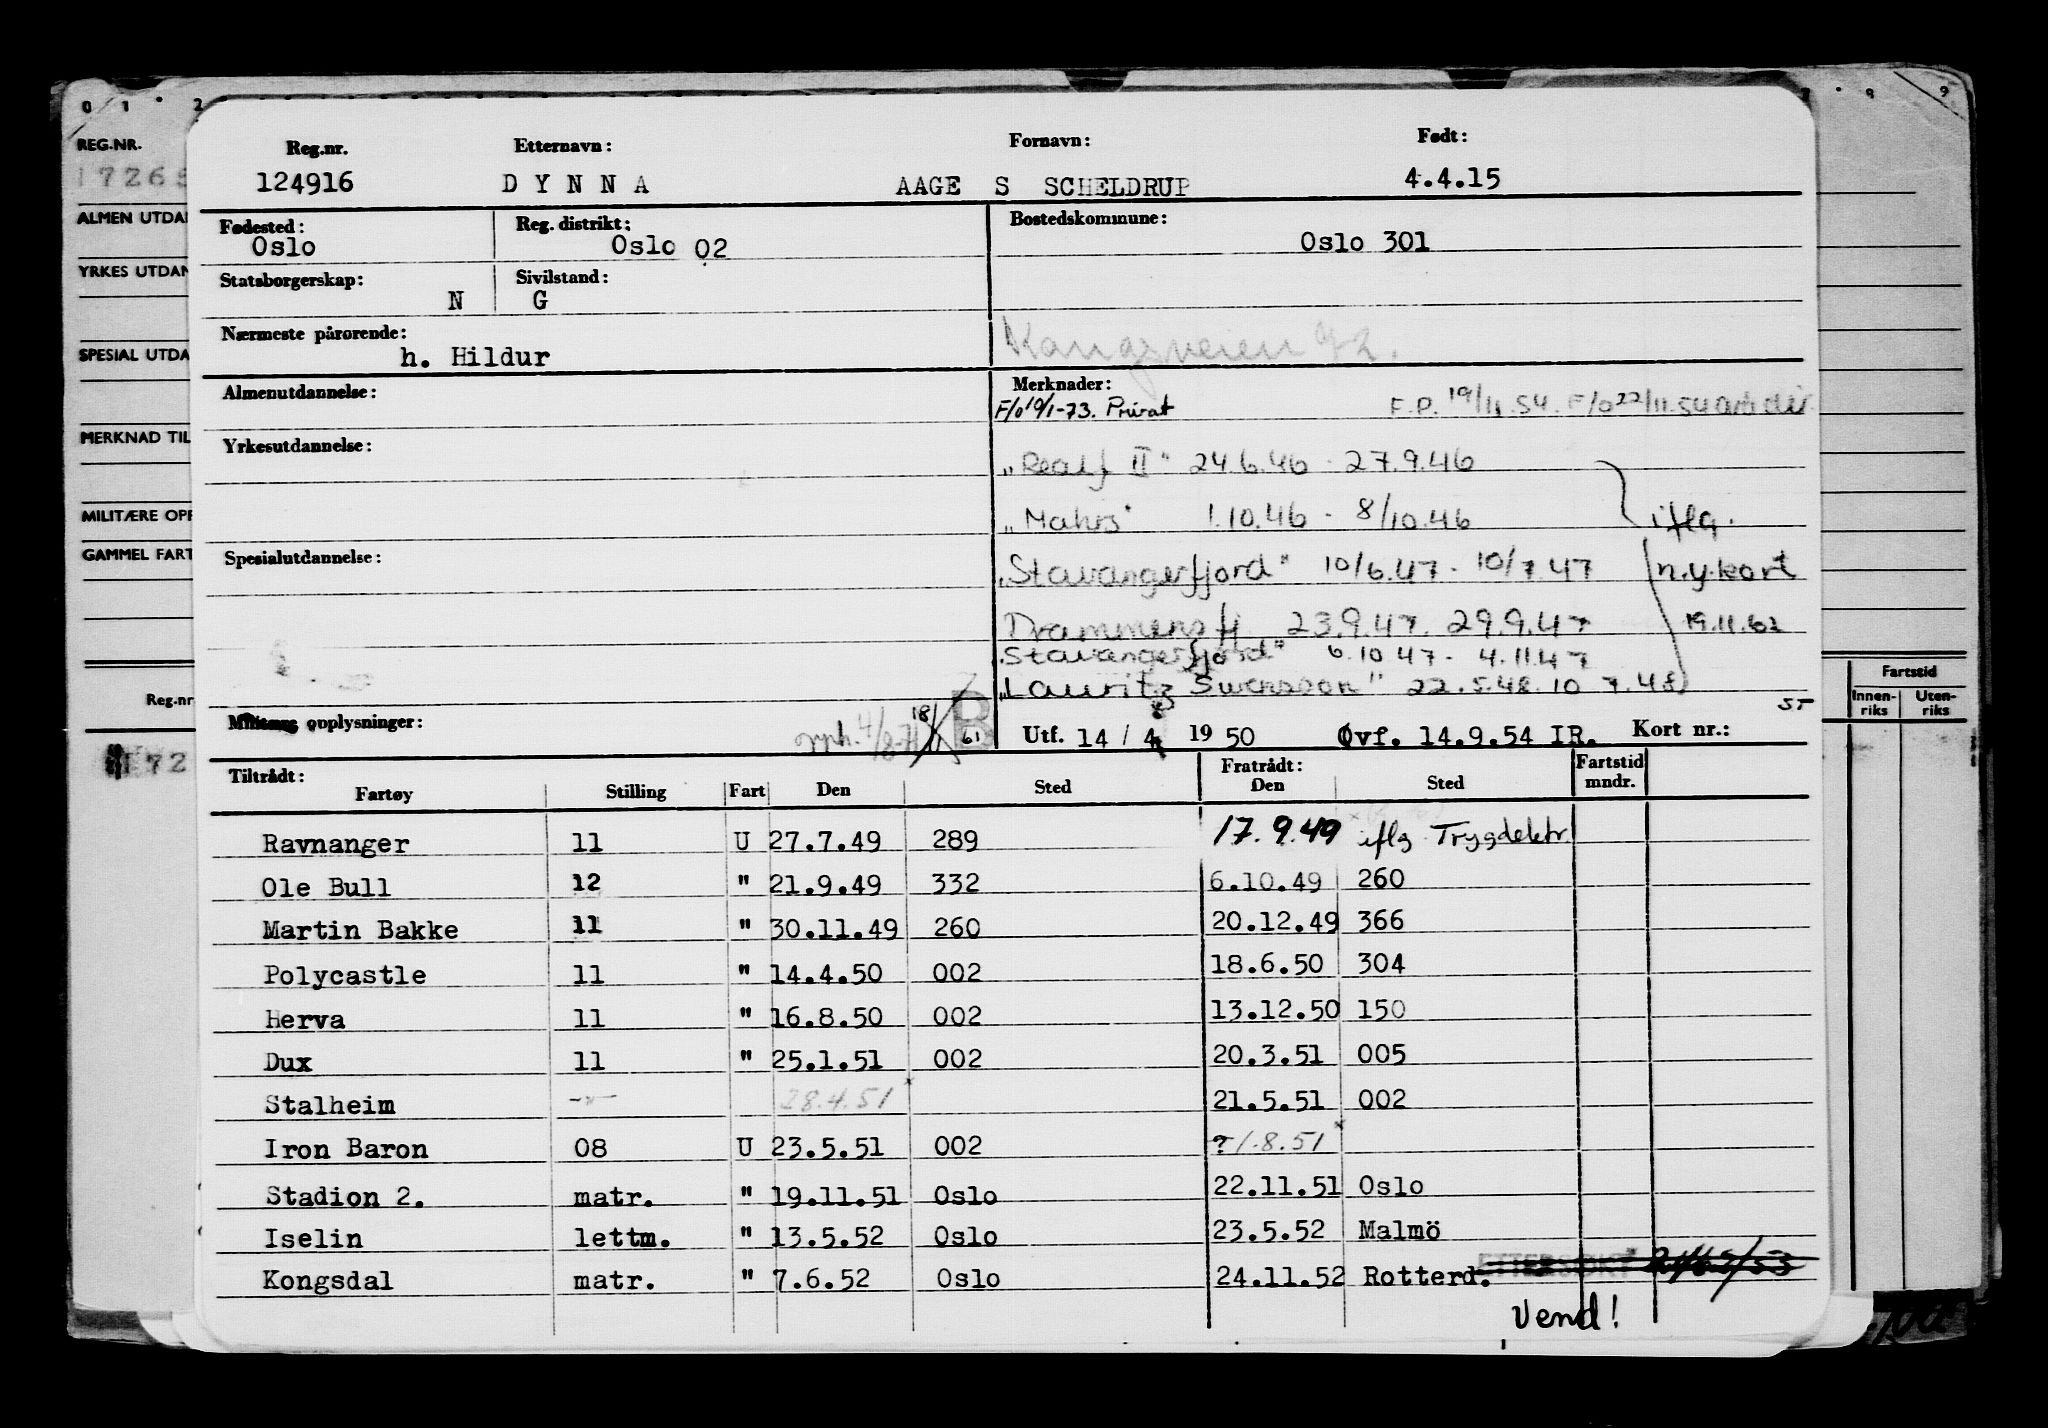 0 1 2 8 9
REG.NR.
ALMEN UTDA
YRKES UTDAN
SPESIAL UTDA
MERKNAD TIL
MILITÆRE OPP
GAMMEL FART
Reg.nr
Fartstid
Innen-riks Uten-riks
Reg.nr. Etternavn: Fornavn: Født:
124916 DYNNA AAGE S SCHELDRUP 4.4.15
Fødested: Reg. distrikt: Bostedskommune:
Oslo Oslo 02 Oslo 301
Statsborgerskap: Sivilstand:
N G
Nærmeste pårørende:
h. Hildur
Almenutdannelse: Merknader:
F/o 19/1-73. Privat F.P. 19/11.54. F/o 22/11.54
Yrkesutdannelse:
II" 24.6.46 - 27.9.46
1.10.46 - 8/10.46 iflg.
Spesialutdannelse:
"Stavangerfjord" 10/6.47 - 10/7.47 n.y.kort
Drammensfj. 23.9.47. 29.9.47 19.11.62
"Stavangerfjord" 6.10 47 - 4.11.47
"Lauritz Swensson" 22.5.48. 10 7.48
Militære opplysninger: B 61 Utf. 14 / 4 1950 Øvf. 14.9.54 IR. Kort nr.:
Tiltrådt: Fratrådt: Fartstid mndr.
Fartøy Stilling Fart Den Sted Den Sted
Ravnanger 11 U 27.7.49 289 17.9.49 iflg Trygdektr.
Ole Bull 12 " 21.9.49 332 6.10.49 260
Martin Bakke 11 " 30.11.49 260 20.12.49 366
Polycastle 11 " 14.4.50 002 18.6.50 304
Herva 11 " 16.8.50 002 13.12.50 150
Dux 11 " 25.1.51 002 20.3.51 005
Stalheim -"- 28.4.51 * 21.5.51 002
Iron Baron 08 U 23.5.51 002 ? 1.8.51 *
Stadion 2. matr. " 19.11.51 Oslo 22.11.51 Oslo
Iselin lettm. " 13.5.52 Oslo 23.5.52 Malmö
Kongsdal matr. " 7.6.52 Oslo 24.11.52 Rotterd.
Vend!